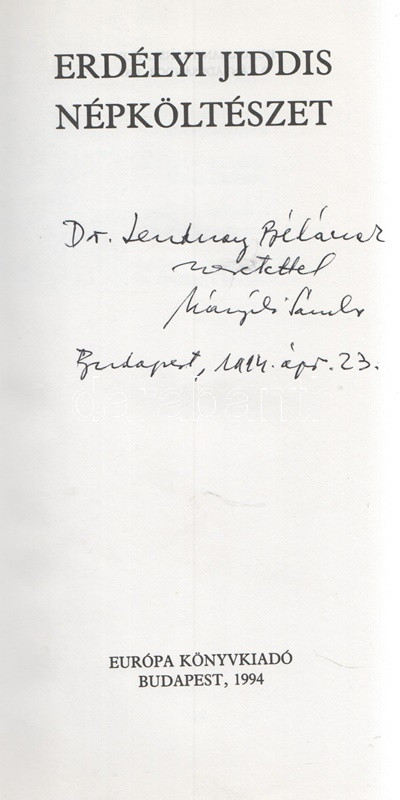 ERDÉLYI JIDDIS
NÉPKÖLTÉSZET
Dr. Lendvay Bélának
szeretettel
Sándor
Budapest, 1994. ápr. 23.
darabanth
EURÓPA KÖNYVKIADÓ
BUDAPEST, 1994